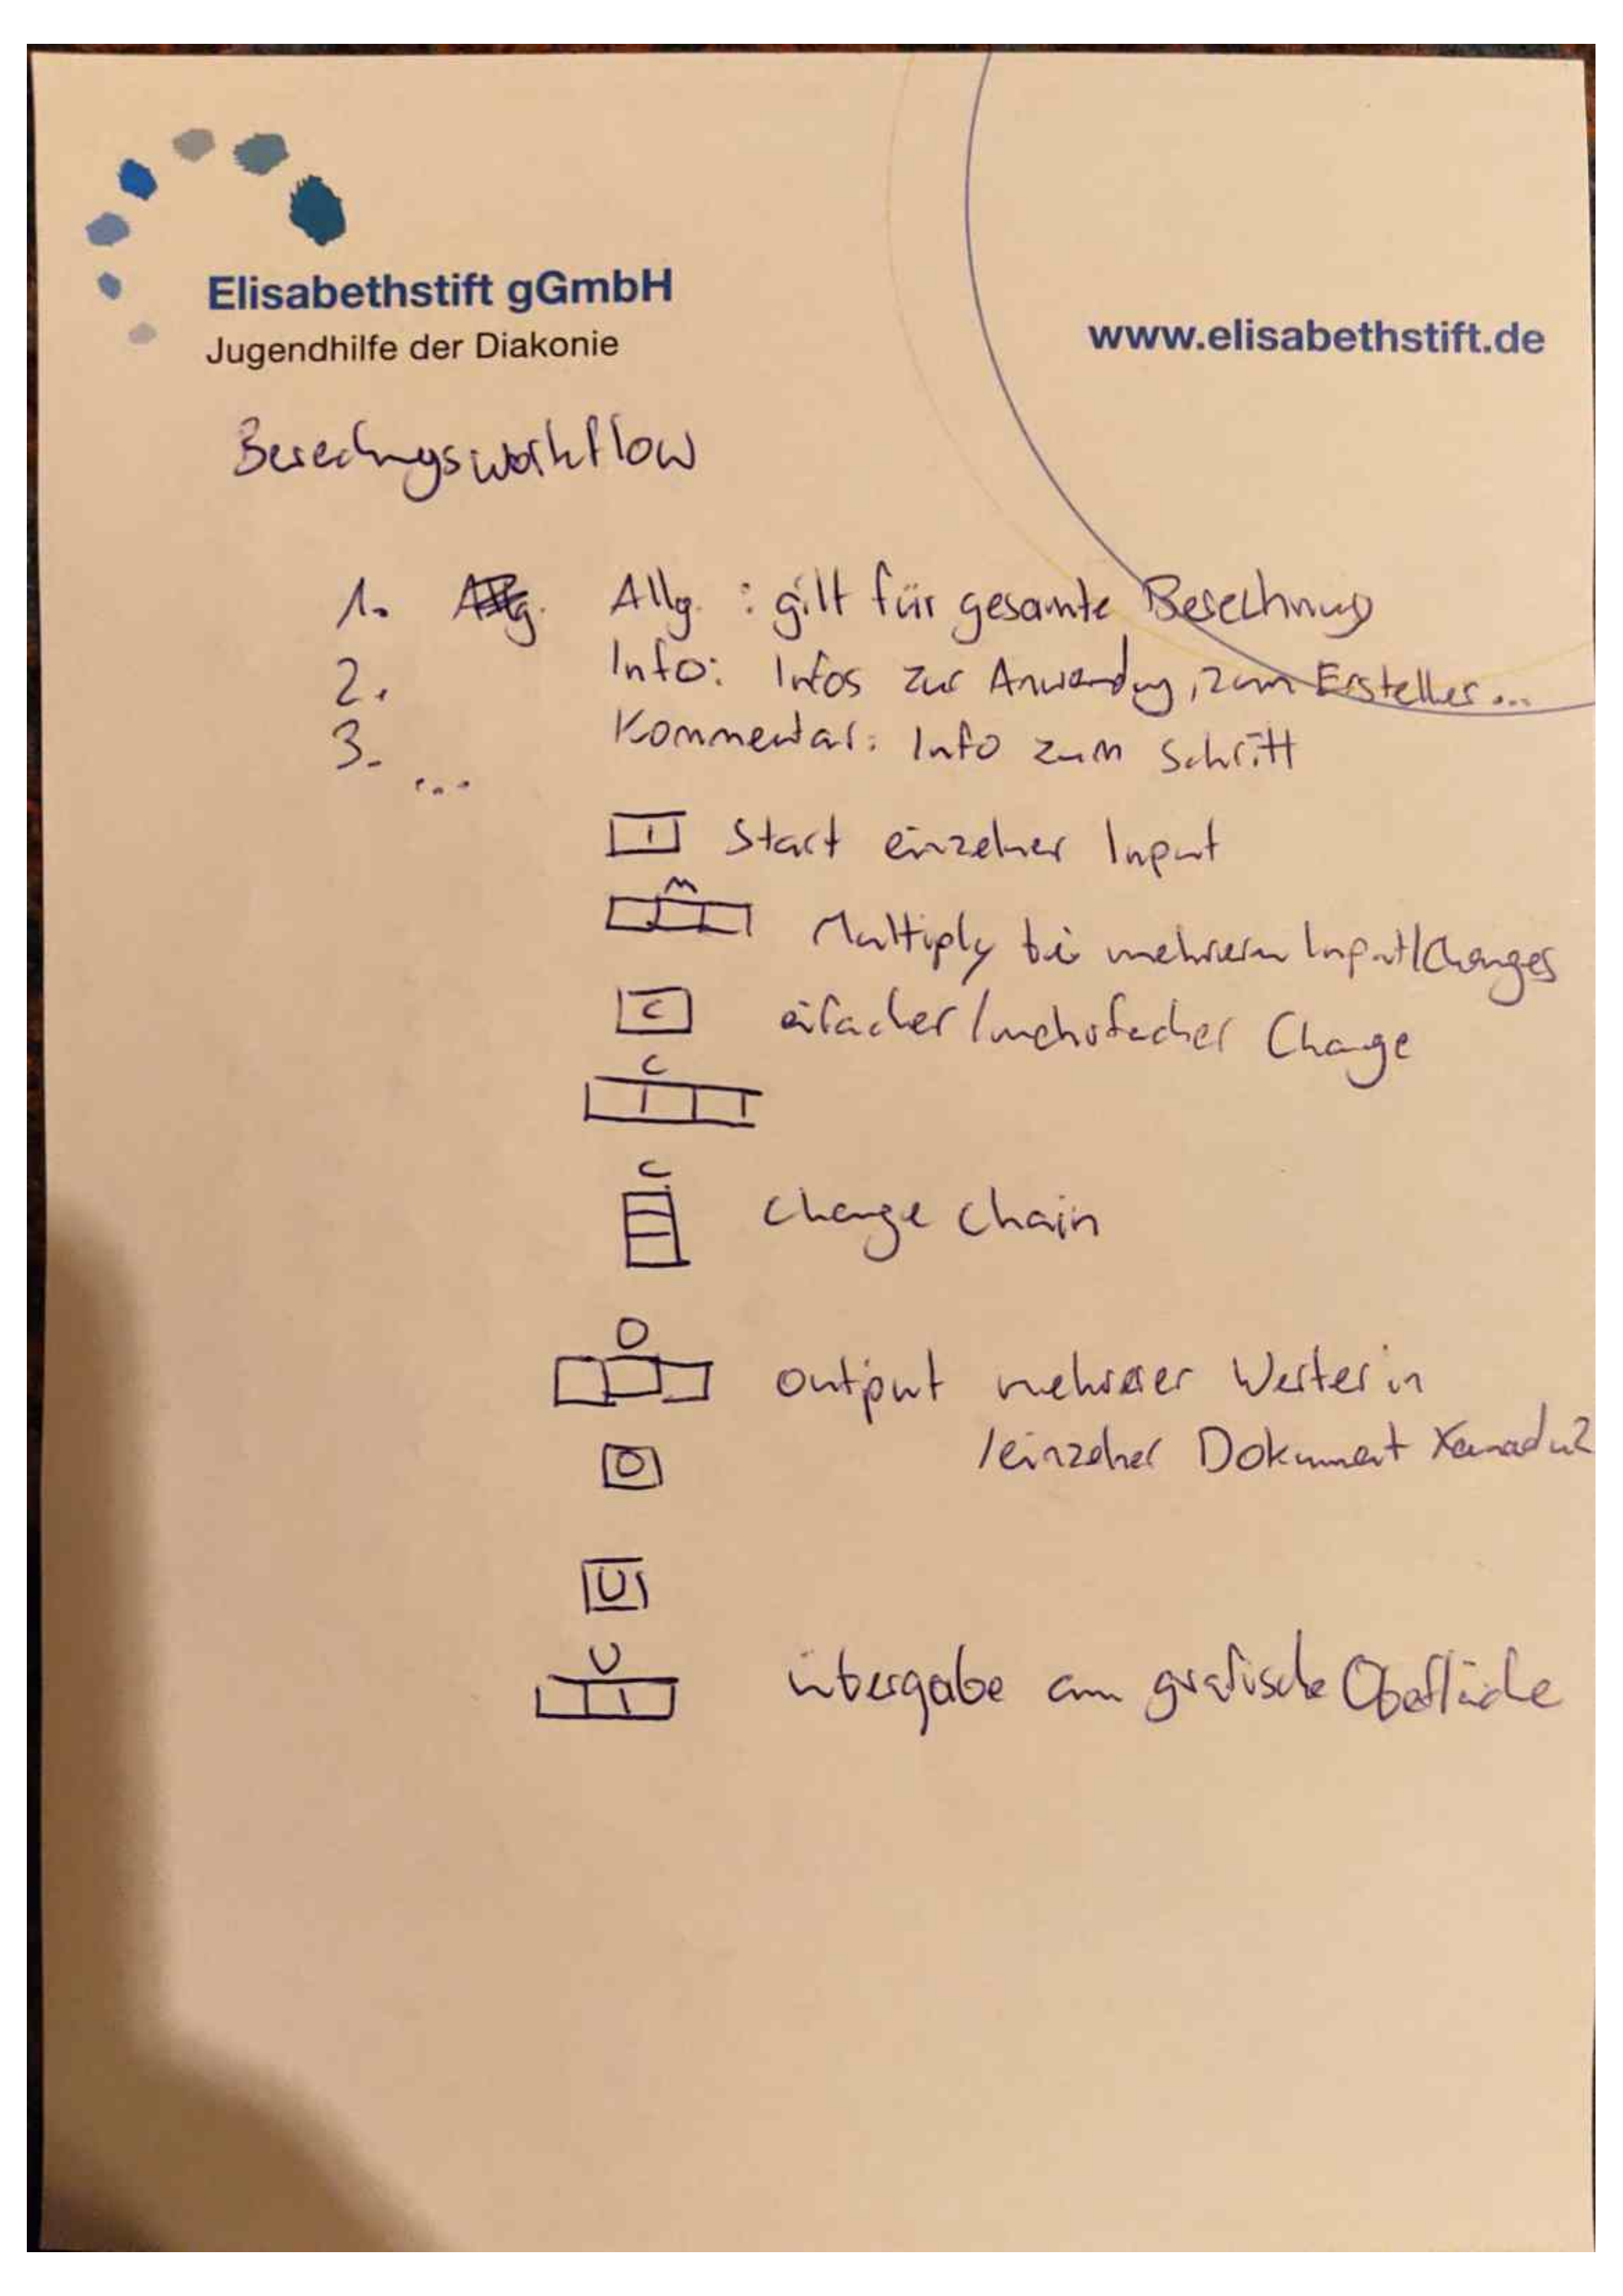 Elisabethstift gGmbH
Jugendhilfe der Diakonie
www.elisabethstift.de
Berechnungsworkflow
1. Allg. : gilt für gesamte Berechnung
2. Info: Infos zur Anwendung, zum Ersteller...
3. Kommentar: Info zum Schritt
...
I Start einzelner Input
M
Multiply bei mehreren Input/Changes
C eifacher/mehrfacher Change
C
C
change chain
O
output mehrerer Werter in
O /einzelner Dokument Xanadu2
U
U
übergabe an grafische Oberfläche